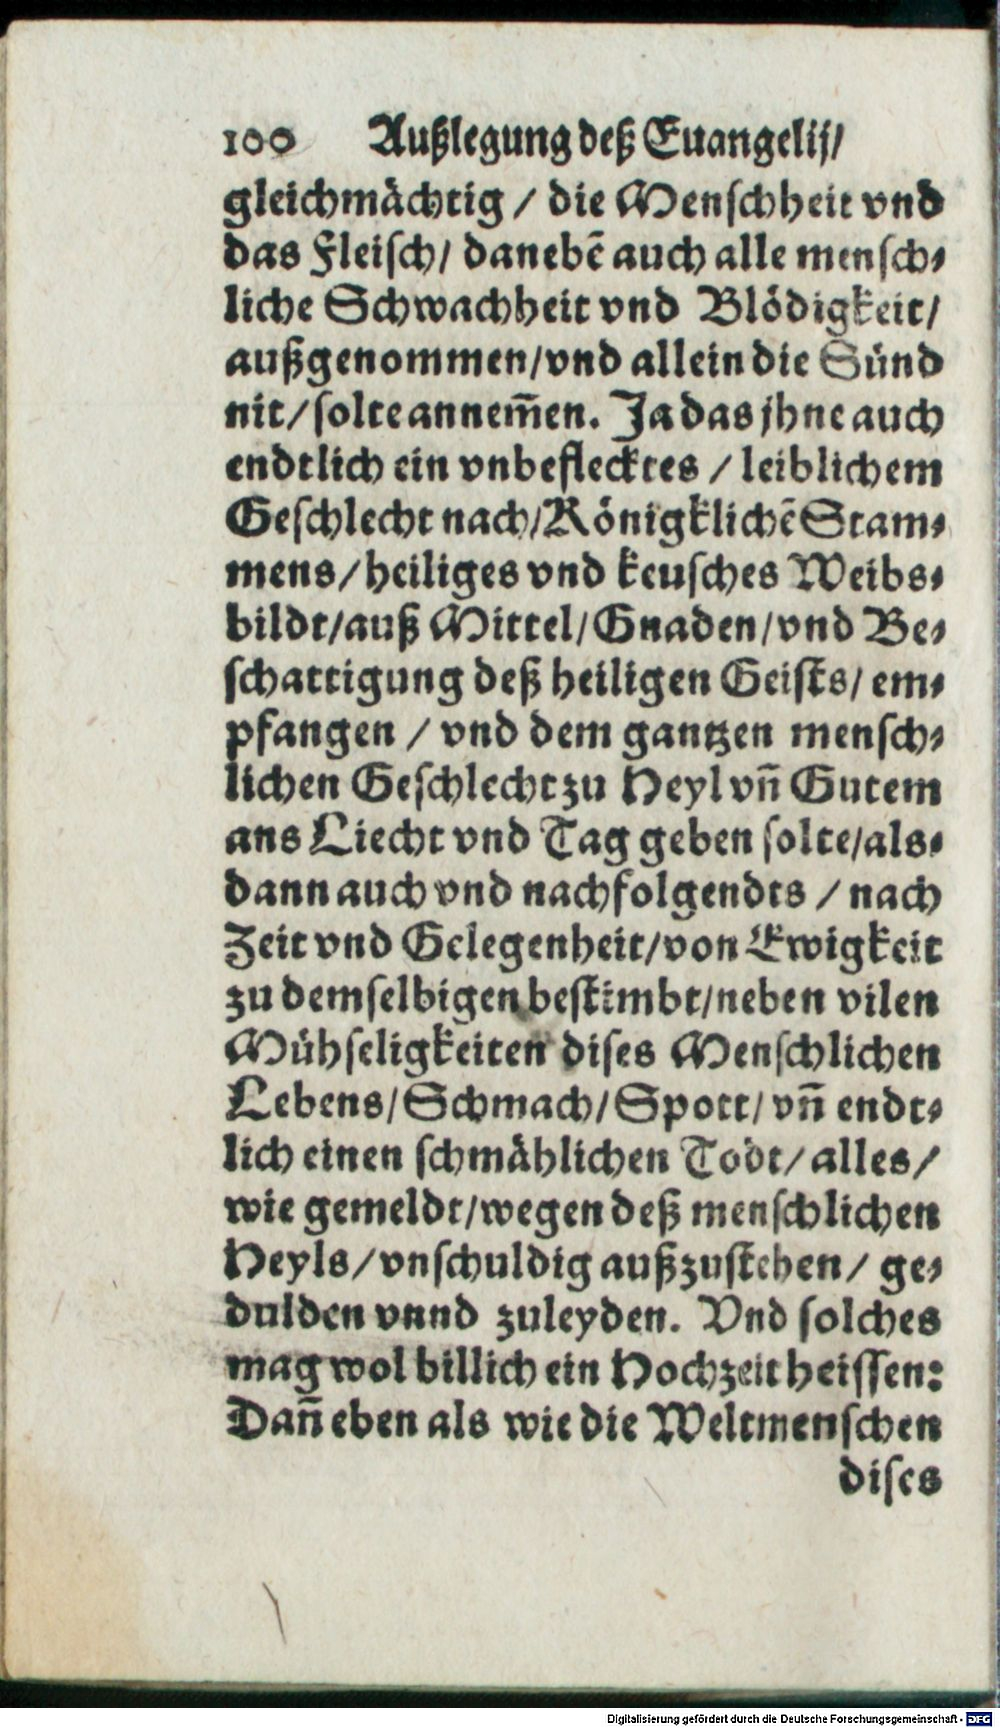 100 Außlegung deß Euangelij/
gleichmächtig / die Menschheit vnd
das Fleisch/ danebẽ auch alle mensch⸗
liche Schwachheit vnd Blödigkeit/
außgenommen/vnd allein die Sünd
nit/solte annem̃en. Ja das jhne auch
endtlich ein vnbeflecktes / leiblichem
Geschlecht nach/Königklichẽ Stam⸗
mens/heiliges vnd keusches Weibs⸗
bildt/auß Mittel/Gnaden/vnd Be⸗
schattigung deß heiligen Geists/ em⸗
pfangen / vnd dem gantzen mensch⸗
lichen Geschlecht zu Heyl vñ Gutem
ans Liecht vnd Tag geben solte/als⸗
dann auch vnd nachfolgendts / nach
Zeit vnd Gelegenheit/von Ewigkeit
zu demselbigen bestimbt/neben vilen
Mühseligkeiten dises Menschlichen
Lebens/Schmach/Spott/ vñ endt⸗
lich einen schmählichen Todt/ alles/
wie gemeldt/wegen deß menschlichen
Heyls/vnschuldig außzustehen/ ge⸗
dulden vnnd zuleyden. Vnd solches
mag wol billich ein Hochzeit heissen:
Dañ eben als wie die Weltmenschen
dises
Digitalisierung gefördert durch die Deutsche Forschungsgemeinschaft - DFG